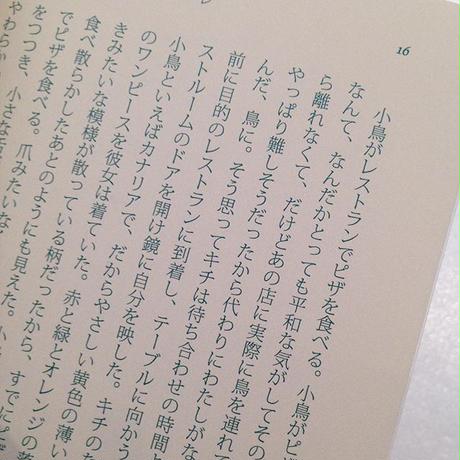 16
小鳥がレストランでピザを食べる。小鳥がピ
なんて、なんだかとっても平和な気がしてその
ら離れなくて、だけどあの店に実際に鳥を連れて
やっぱり難しそうだったから代わりにわたしがな
んだ、鳥に。そう思ってキチは待ち合わせの時間よ
前に目的のレストランに到着し、テーブルに向かう
ストルームのドアを開け鏡に自分を映した。キチのな
小鳥といえばカナリアで、だからやさしい黄色の薄い
のワンピースを彼女は着ていた。赤と緑とオレンジの落
きみたいな模様が散っている柄だったから、すでにピザ
食べ散らかしたあとのようにも見えた。小
でピザを食べる。爪みたいな
をつつき、小さな
やわらか